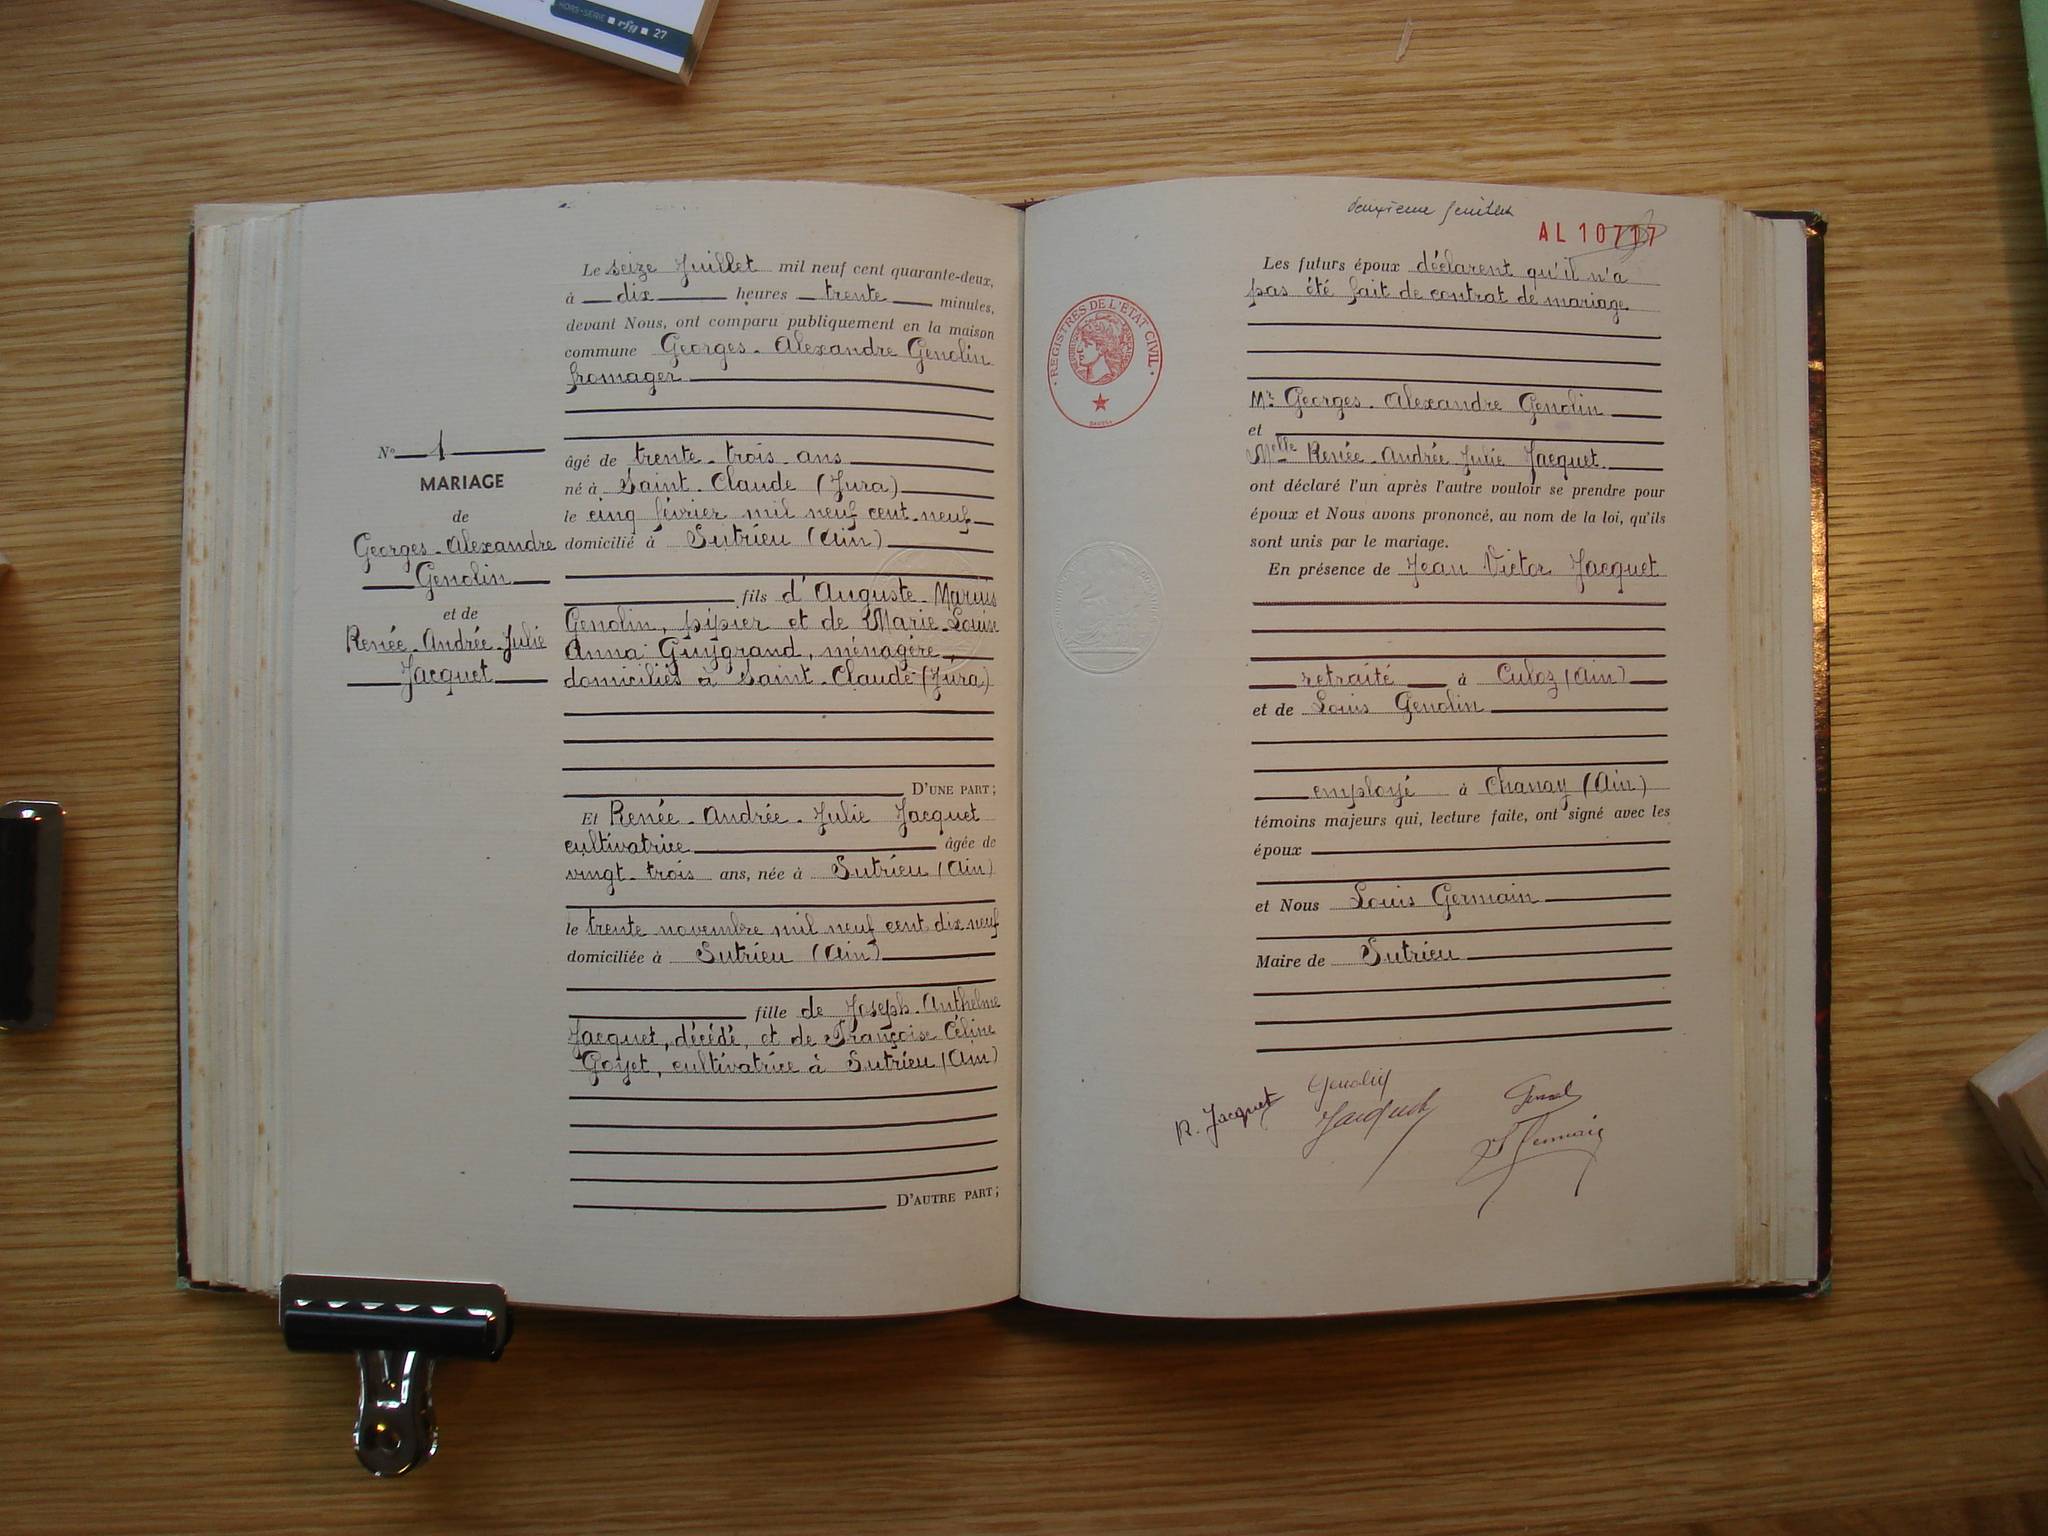 HORS-SÉRIE ■ rfg ■ 27
Le seize Juillet mil neuf cent quarante-deux,
à dix heures trente minutes,
devant Nous, ont comparu publiquement en la maison
commune Georges-Alexandre Genolin
fromager
âgé de trente-trois ans
né à Saint-Claude (Jura)
le cinq février mil neuf cent-neuf
domicilié à Sutrieu (Ain)
fils d'Auguste-Marius
Genolin, pipier et de Marie-Louise
Anna Guygrand, ménagère,
domiciliés à Saint-Claude (Jura)
D'UNE PART;
Et Renée-Andrée-Julie Jacquet
cultivatrice âgée de
vingt-trois ans, née à Sutrieu (Ain)
le trente novembre mil neuf cent dix-neuf
domiciliée à Sutrieu (Ain)
fille de Joseph-Anthelme
Jacquet, décédé, et de Françoise Céline
Goyet, cultivatrice à Sutrieu (Ain)
D'AUTRE PART;
N° 1
MARIAGE
de
Georges-Alexandre
Genolin
et de
Renée-Andrée-Julie
Jacquet
deuxième feuillet
AL 10717
REGISTRES DE L'ÉTAT CIVIL
Les futurs époux déclarent qu'il n'a
pas été fait de contrat de mariage
Mr Georges-Alexandre Genolin
et
Melle Renée-Andrée Julie Jacquet
ont déclaré l'un après l'autre vouloir se prendre pour
époux et Nous avons prononcé, au nom de la loi, qu'ils
sont unis par le mariage.
En présence de Jean Victor Jacquet
retraité à Culoz (Ain)
et de Louis Genolin
employé à Chanay (Ain)
témoins majeurs qui, lecture faite, ont signé avec les
époux
et Nous Louis Germain
Maire de Sutrieu
R. Jacquet Genolin
Jacquet
Germain